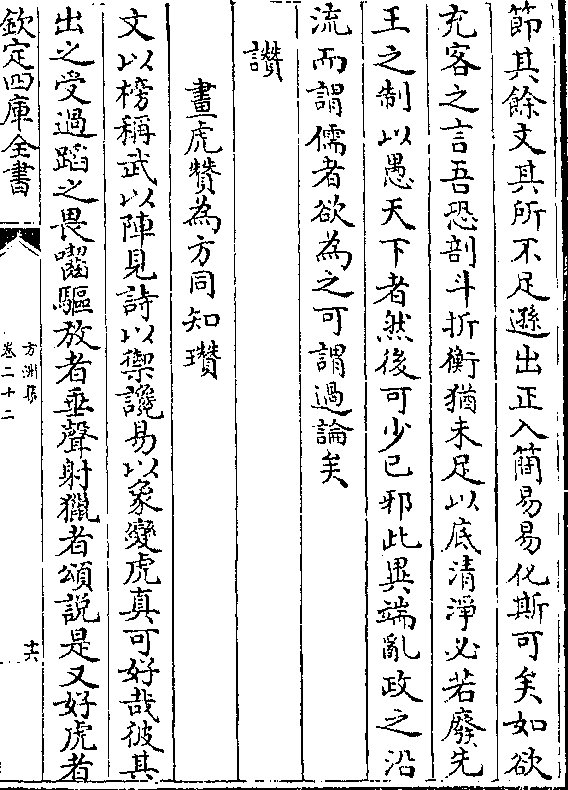 節其餘文其所不足遜出正入簡易易化斯可矣如欲
充客之言吾恐剖斗折衡猶未足以底清淨必若廢先
王之制以愚天下者然後可少已邪此異端亂政之沿
流而謂儒者欲為之可謂過論矣
讚
畫虎贊為方同知瓚
文以榜稱武以陣見詩以禦讒易以象變虎真可好哉彼其
出之受過蹈之畏囓驅放者垂聲射獵者頌説是又好虎者
欽定四庫全書
方洲集
卷二十二
十六